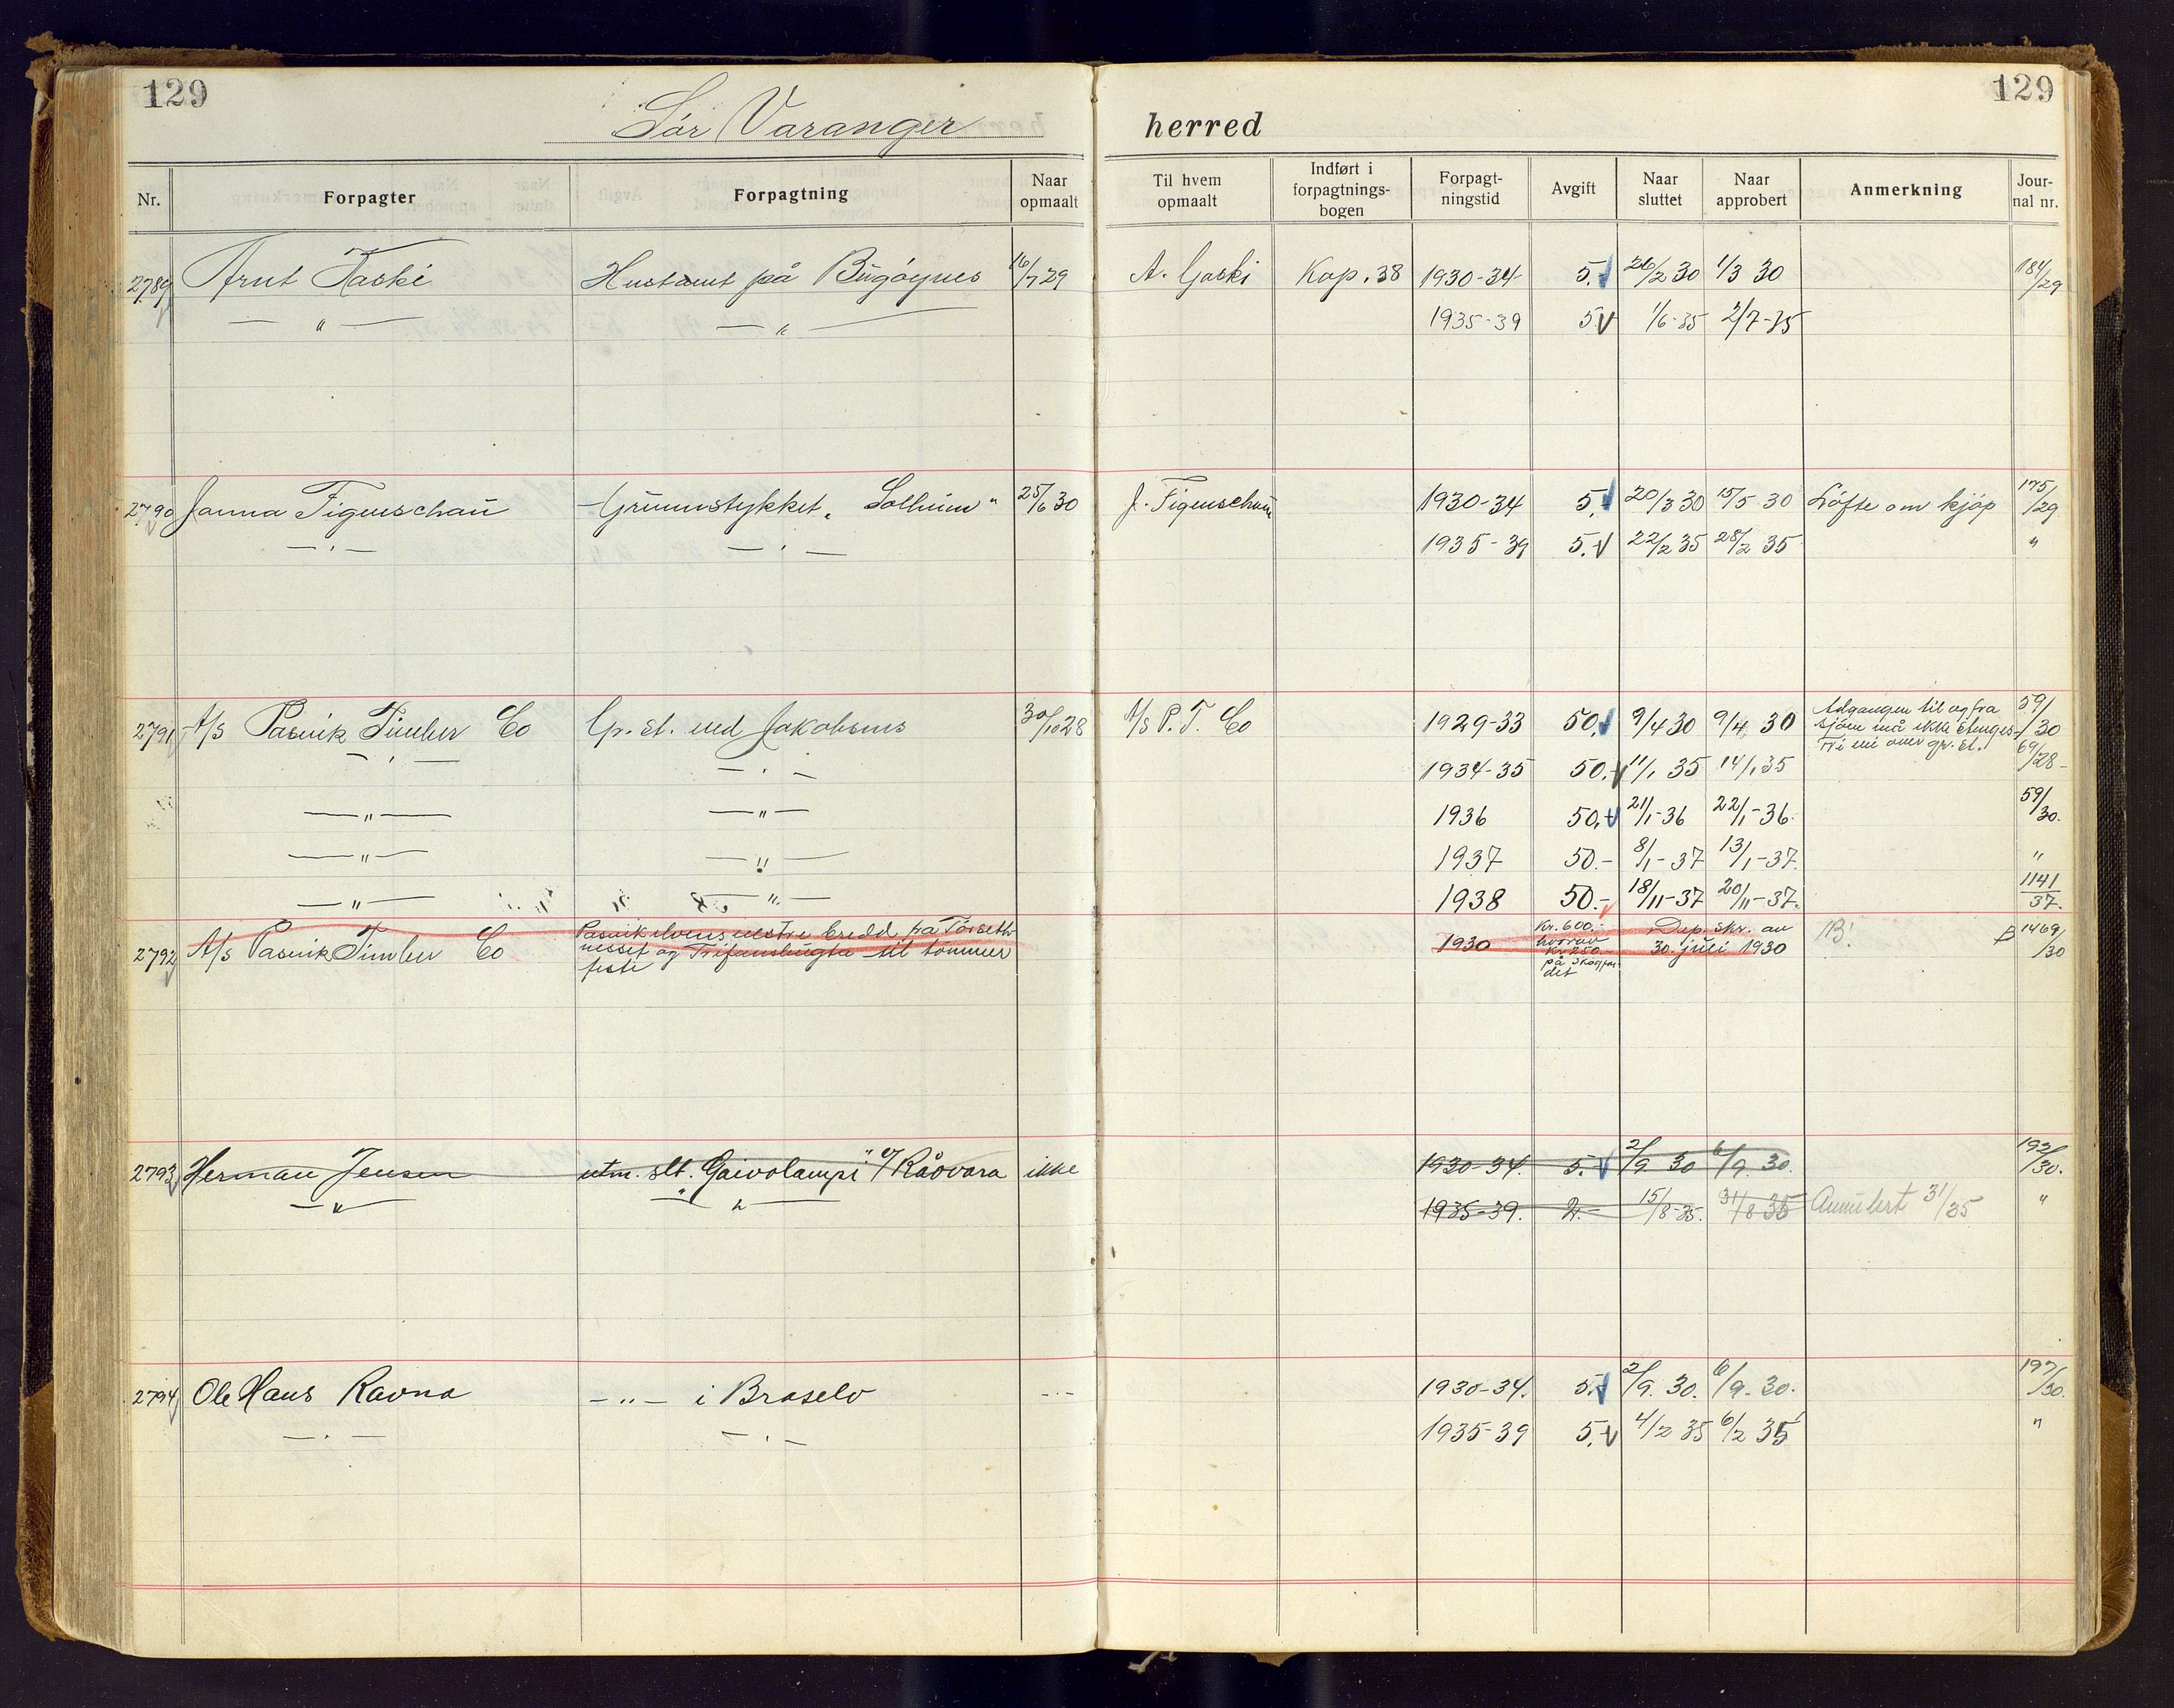 129
129
Sør Varanger herred
Nr. Forpagter Forpagtning Naar opmaalt Til hvem opmaalt Indført i forpagtnings-bogen Forpagt-ningstid Avgift Naar sluttet Naar approbert Anmerkning Jour-nal nr.
2789 Arnt Kaski Hustomt på Bugøynes 16/7 29 A. Gaski Kap. 38 1930-34 5.- 26/2 30 1/3 30 184/29
— " — — " — 1935-39 5 1/6-35 2/7-35
2790 Janna Figenschau Grunnstykket „Solheim" 25/6 30 J. Figenschau 1930-34 5.- 20/3 30 15/5 30 Løfte om kjøp 175/29
— " — — " — 1935-39 5.- 22/2 35 28/2 35 "
2791 A/s Pasvik Timber Co Gr. st. ved Jakobsnes 30/10 28 A/s P. T. Co 1929-33 50.- 9/4 30 9/4 30 Adgangen til og fra sjøen må ikke stenges 59/30
— " — — " — 1934-35 50.- 11/1 35 14/1 35 69/28
— " — — " — 1936 50.- 21/1-36 22/1-36. 59/30.
— " — — " — 1937 50.- 8/1-37 13/1-37. "
— " — — " — 1938 50.- 18/11-37 20/11-37. 1141/37.
2792 A/s Pasvik Timber Co Pasvikelvens vestre bredd fra
nesset og til tømmer
feste 1930 Kr. 600.-
hvorav
Kr 250.-
på
det Dep. skr. av
30. juli 1930 B! 1469/30
2793 Herman Jensen utm. slt. „Gaivolampi" v/ Kåovara ikke 1930-34. 5.- 2/9 30 6/9. 30. 192/30.
— " — — " — 1935-39. 2.- 15/8-35. 31/8 35 Annulert 31/35 "
2794 Ole Hans Ravna — " — i Braselv — " — 1930-34. 5.- 2/9. 30. 6/9. 30. 197/30.
— " — — " — 1935-39 5.- 4/2 35 6/2 35 "